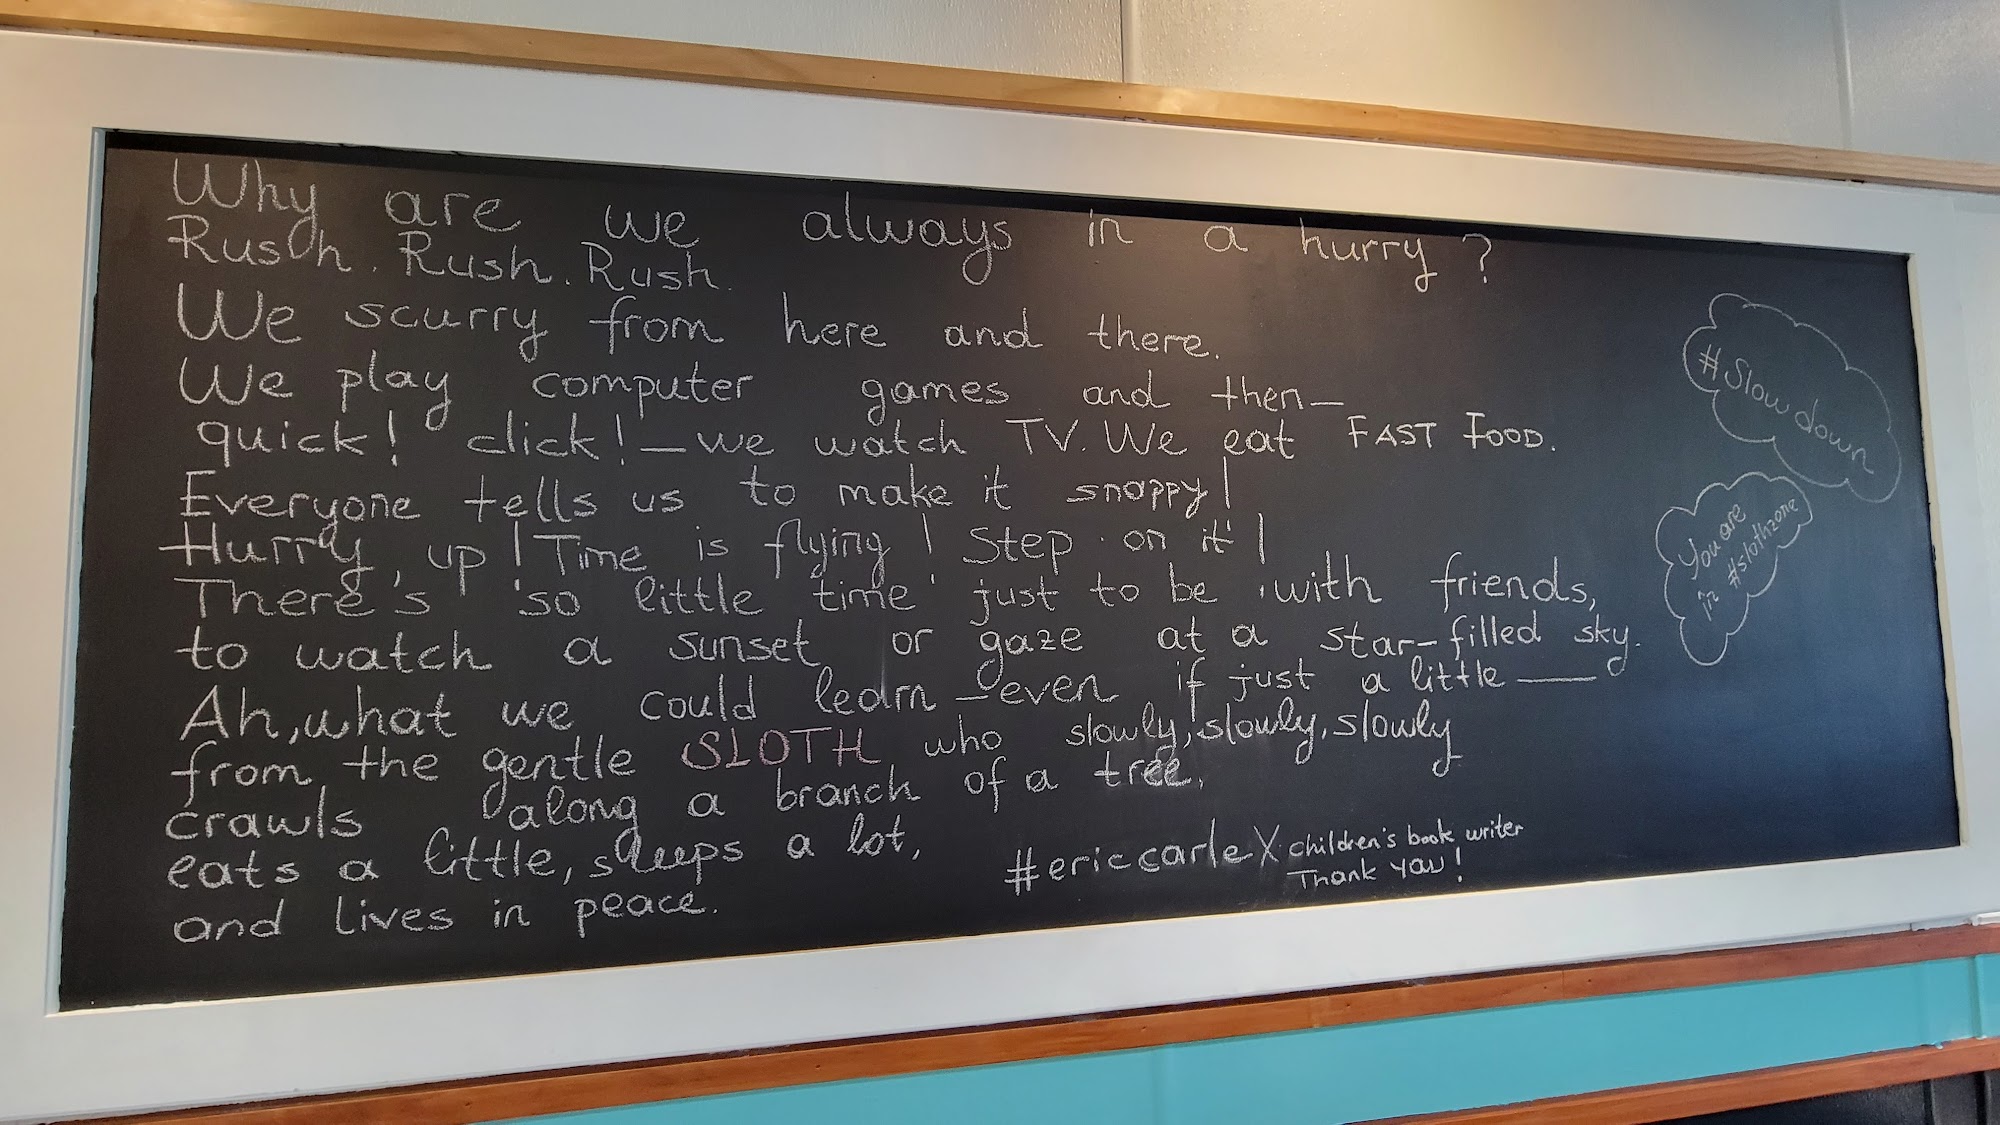 Why are we always in a hurry?
Rush. Rush. Rush.
We scurry from here and there.
We play computer games and then—
quick! click!—we watch TV. We eat FAST FOOD.
Everyone tells us to make it snappy!
Hurry, up! Time is flying! Step on it!
There's so little time just to be with friends,
to watch a sunset or gaze at a star-filled sky.
Ah, what we could learn—even if just a little—
from the gentle SLOTH who slowly, slowly, slowly
crawls along a branch of a tree,
eats a little, sleeps a lot,
and lives in peace.
#ericcarle X children's book writer
Thank you!
#Slowdown
You are
in #slothzone